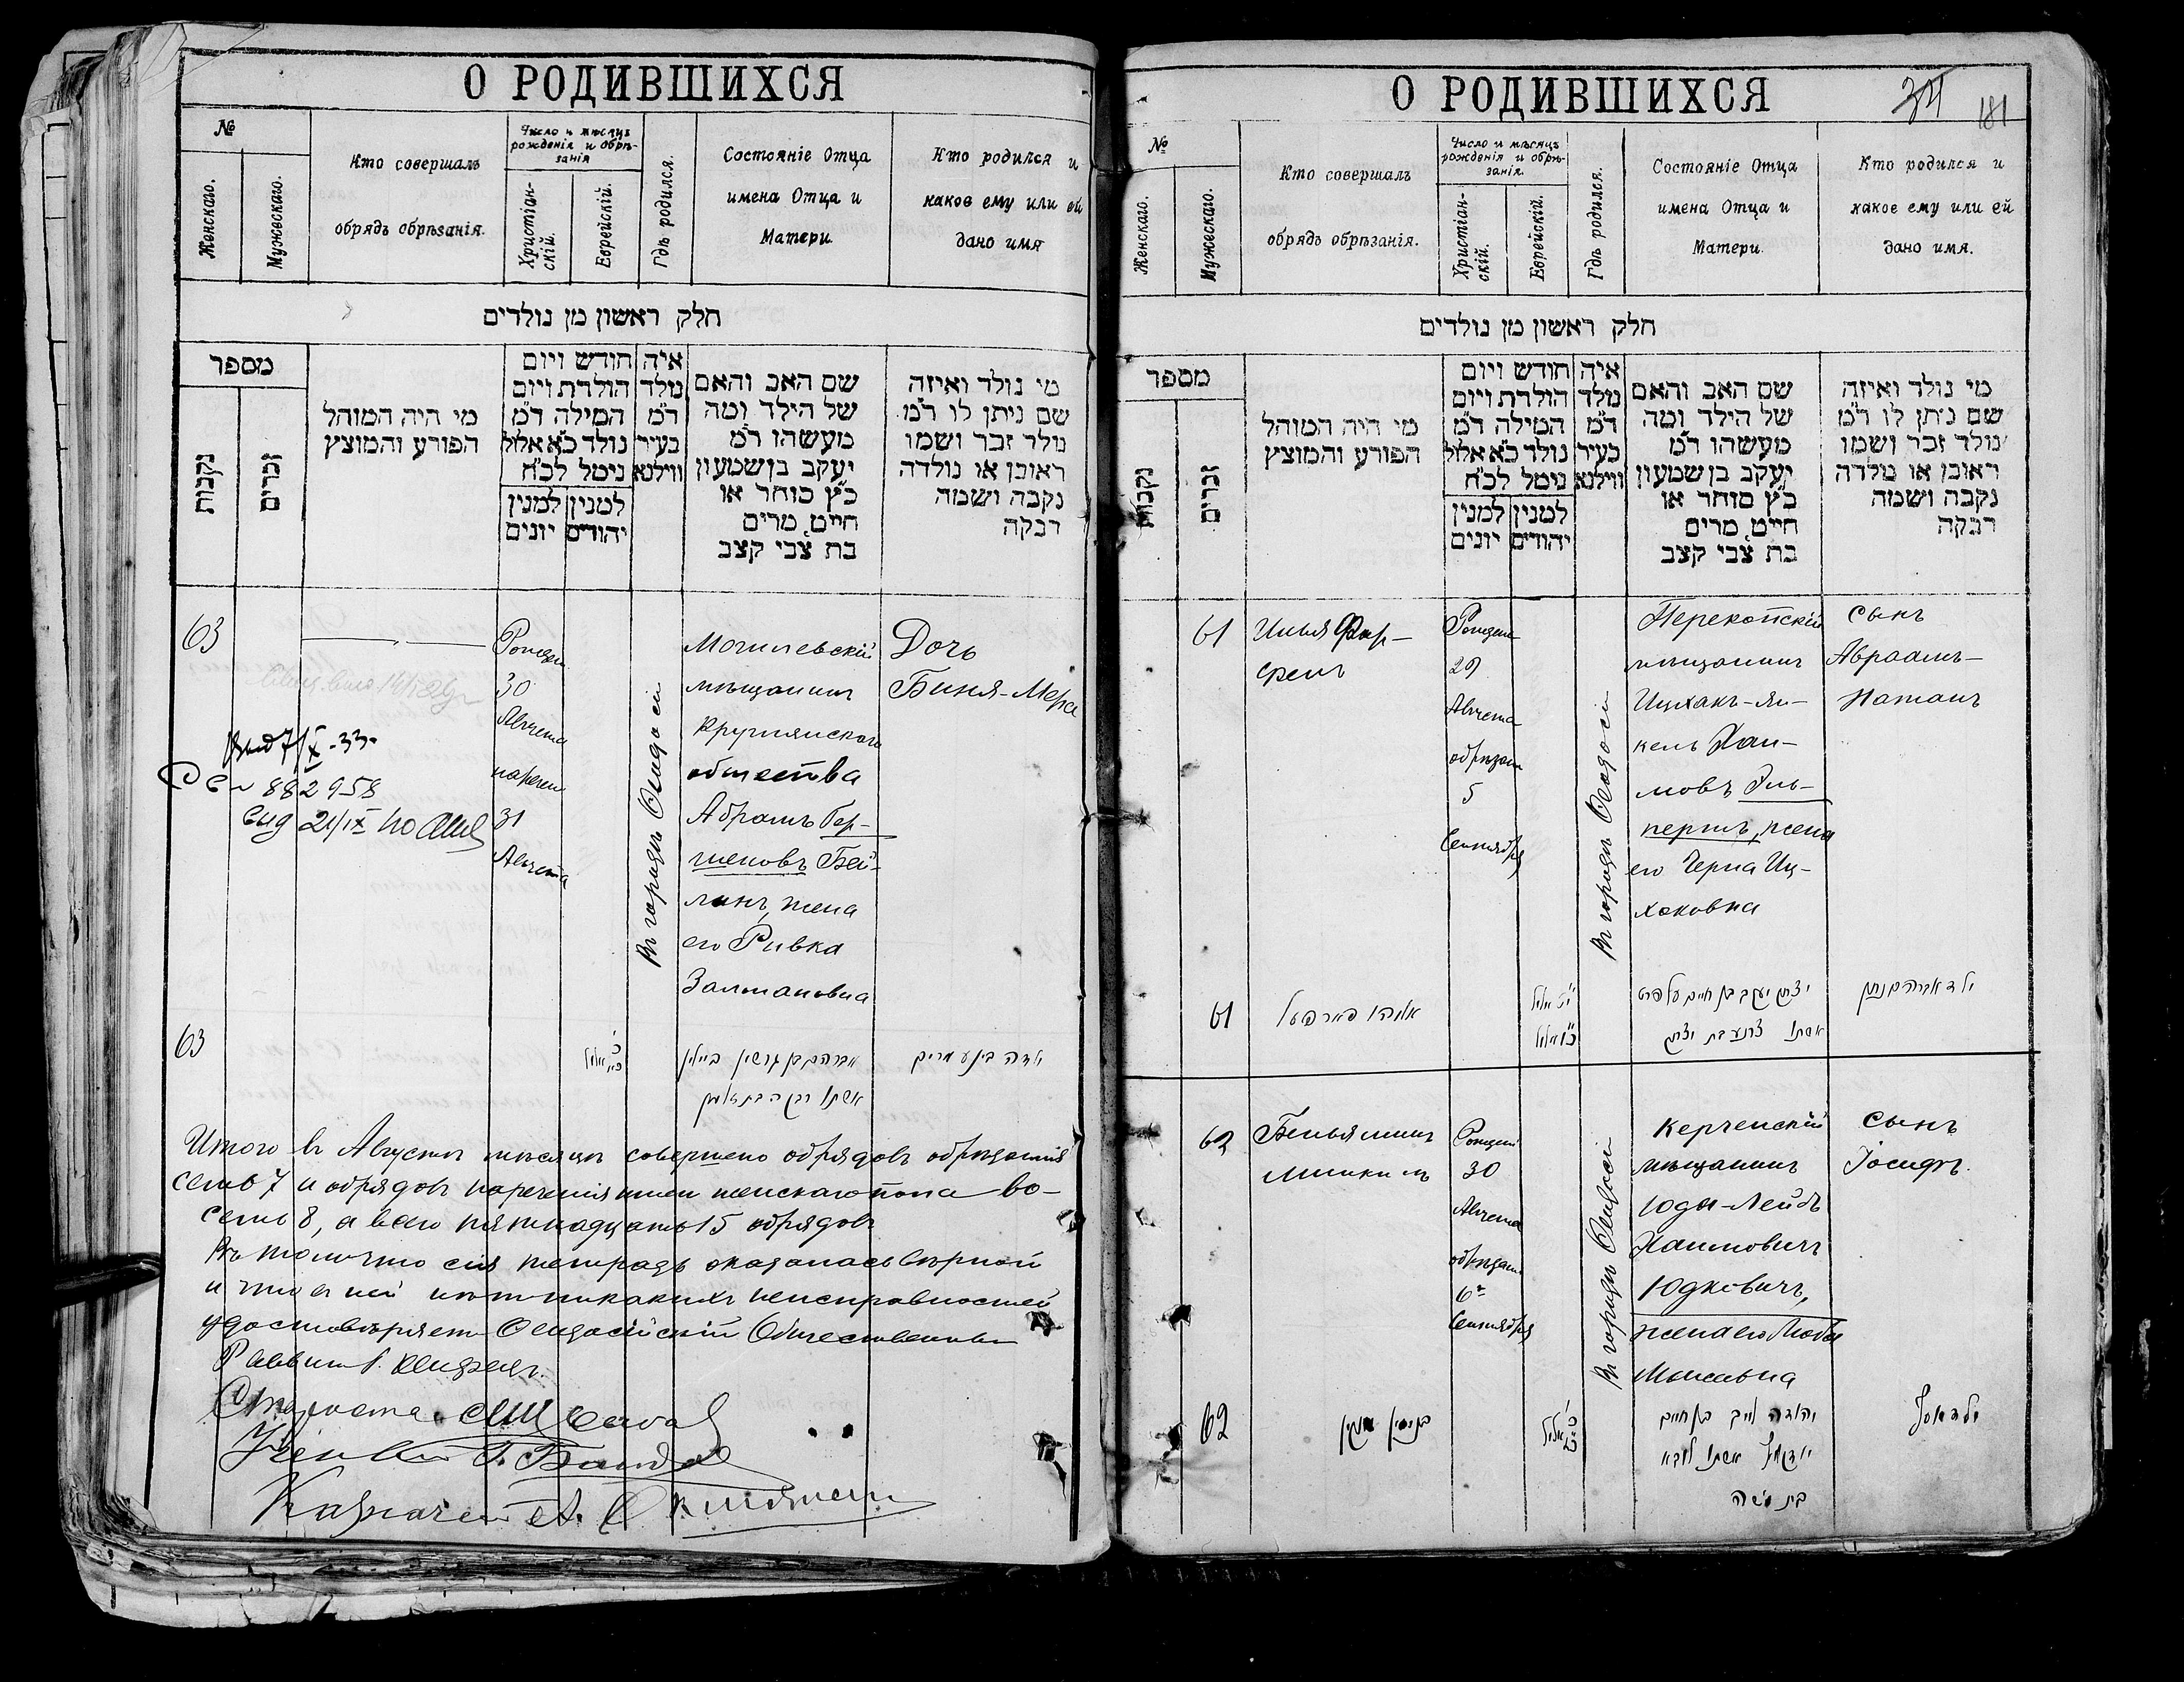 О РОДИВШИХСЯ
№
Женскаго.
Мужескаго.
Кто совершалъ
обрядъ обрѣзанія.
Число и мѣсяцъ
рожденія и обрѣ-
занія
Христіан-
скій.
Еврейскій.
Гдѣ родился.
Состояніе Отца
имена Отца и
Матери.
Кто родился и
какое ему или ей
дано имя
חלק ראשון מן נולדים
מספר
נקבות
זכרים
מי היה המוהל
הפורע והמוצץ
חודש ויום
הולדת ויום
המילה ד"מ
נולד כ"א אלול
ניטל לכ"ח
למנין יהודים
למנין יונים
איה
נולד
ד"מ
בעיר
ווילנא
שם האב והאם
של הילד ומה
מעשהו ד"מ
יעקב בן שמעון
כ"ץ סוחר או
חייט מרים
בת צבי קצב
מי נולד ואיזה
שם ניתן לו ד"מ
נולד זכר ושמו
ראובן או נולדה
נקבה ושמה
רבקה
63
Рожден
30
Августа
наречен
31
Августа
Въ городѣ Ѳеодосіи
Могилевскій
мѣщанинъ
Круглянскаго
общества
Абрамъ Гер-
шеновъ Бей-
линъ, жена
его Ривка
Залмановна
Дочь
Биня-Мера
7/X-33-
882958
21/IX 40
63
אברהם בן גרשון ביילין
אשתו רבקה בת זלמן
ילדה בינע מרים
Итого въ Августѣ мѣсяцѣ совершено обрядовъ обрѣзанія
семь 7 и обрядовъ нареченія имени женскаго пола во-
семь 8, а всего пятнадцать 15 обрядовъ
Въ томъ что сія тетрадь оказалась вѣрной
и что въ ней нѣтъ никакихъ неисправностей
удостовѣряетъ Ѳеодосійскій Общественный
Раввинъ
Староста
Казначей А.
О РОДИВШИХСЯ
34
181
№
Женскаго.
Мужескаго.
Кто совершалъ
обрядъ обрѣзанія.
Число и мѣсяцъ
рожденія и обрѣ-
занія.
Христіан-
скій.
Еврейскій.
Гдѣ родился.
Состояніе Отца
имена Отца и
Матери.
Кто родился и
какое ему или ей
дано имя.
חלק ראשון מן נולדים
מספר
נקבות
זכרים
מי היה המוהל
הפורע והמוצץ
חודש ויום
הולדת ויום
המילה ד"מ
נולד כ"א אלול
ניטל לכ"ח
למנין יהודים
למנין יונים
איה
נולד
ד"מ
בעיר
ווילנא
שם האב והאם
של הילד ומה
מעשהו ד"מ
יעקב בן שמעון
כ"ץ סוחר או
חייט מרים
בת צבי קצב
מי נולד ואיזה
שם ניתן לו ד"מ
נולד זכר ושמו
ראובן או נולדה
נקבה ושמה
רבקה
61
Илья Фар-
фель
Рожден
29
Августа
обрѣзан
5
Сентября
Въ городѣ Ѳеодосіи
Перекопскій
мѣщанинъ
Ицхакъ-Ян-
кель Хаи-
мовъ Эль-
пертъ, жена
его Черна Иц-
хаковна
Сынъ
Авраамъ-
Натанъ
61
אליהו פארפעל
יצחק יעקב בן חיים עלפרט
אשתו צרנע בת יצחק
ילד אברהם נתן
62
Беньяминъ
Мишкинъ
Рожден
30
Августа
обрѣзан
6го
Сентября
Въ городѣ Ѳеодосіи
Керченскій
мѣщанинъ
Юда-Лейбъ
Хаимовичъ
Юдковичъ,
жена его Люба
Мошевна
Сынъ
Іосифъ.
62
בנימין מישקין
יהודה לייב בן חיים
יודקוויץ אשתו ליבא
בת משה
ילד יוסף